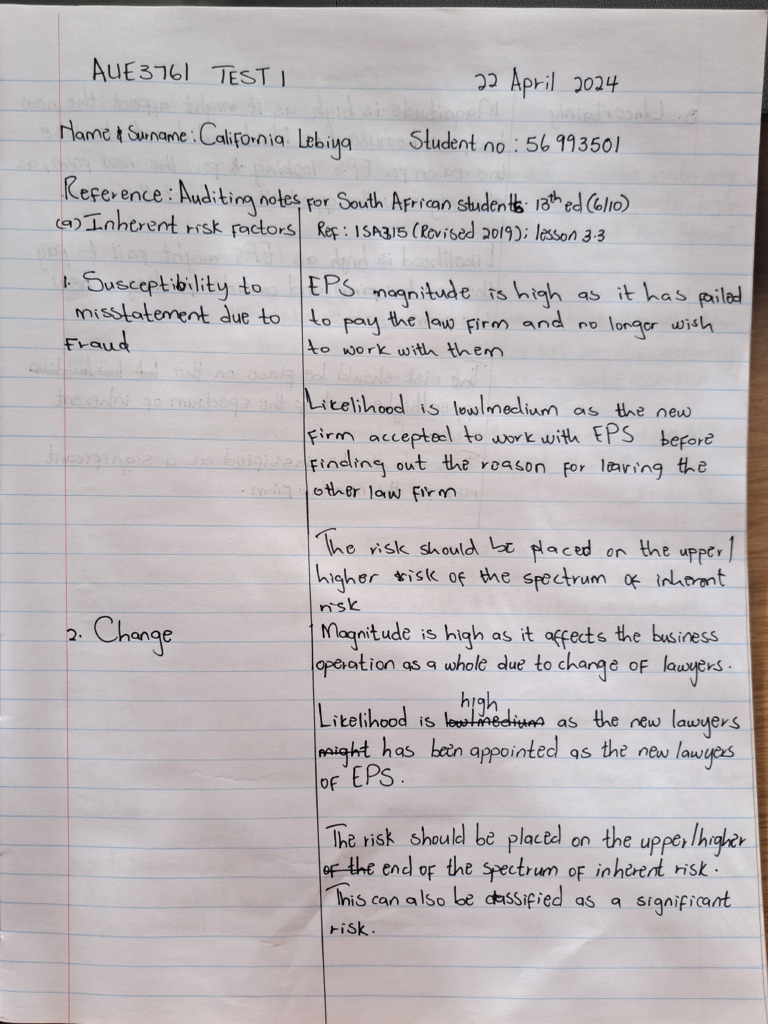 AUE3761 TEST 1 22 April 2024
Name & Surname: California Lebiya Student no: 56 993501
Reference: Auditing notes for South African students 13th ed (6/10)
(a) Inherent risk factors Ref: ISA315 (Revised 2019); lesson 3.3
1. Susceptibility to misstatement due to Fraud
EPS magnitude is high as it has failed
to pay the law firm and no longer wish
to work with them
Likelihood is low/medium as the new
firm accepted to work with EPS before
finding out the reason for leaving the
other law firm
The risk should be placed on the upper/
higher risk of the spectrum of inherent
risk
2. Change
Magnitude is high as it affects the business
operation as a whole due to change of lawyers.
high
Likelihood is low/medium as the new lawyers
might has been appointed as the new lawyers
of EPS.
The risk should be placed on the upper/higher
of the end of the spectrum of inherent risk.
This can also be classified as a significant
risk.